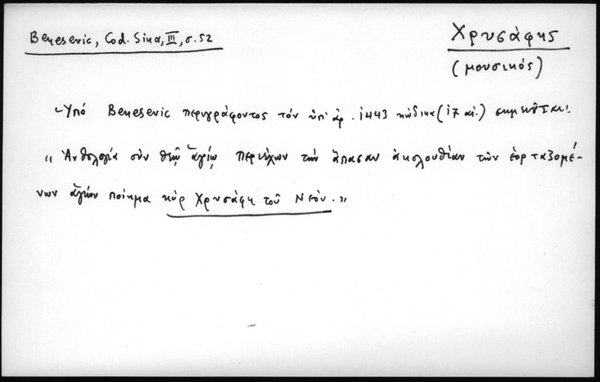 Benesevic, Cod. Sina, III, σ. 52
Χρυσάφης
(μουσικός)
- Ὑπό Benesevic περιγράφοντος τόν ὑπ' ἀρ. 1443 κώδικα (17 αἰ.) σημειοῦται:
" Ἀνθολογία σύν θεῷ ἁγίῳ περιέχων τήν ἅπασαν ἀκολουθίαν τῶν ἑορταζομέ-
νων ἁγίων ποίημα κύρ Χρυσάφη τοῦ Νέου. "